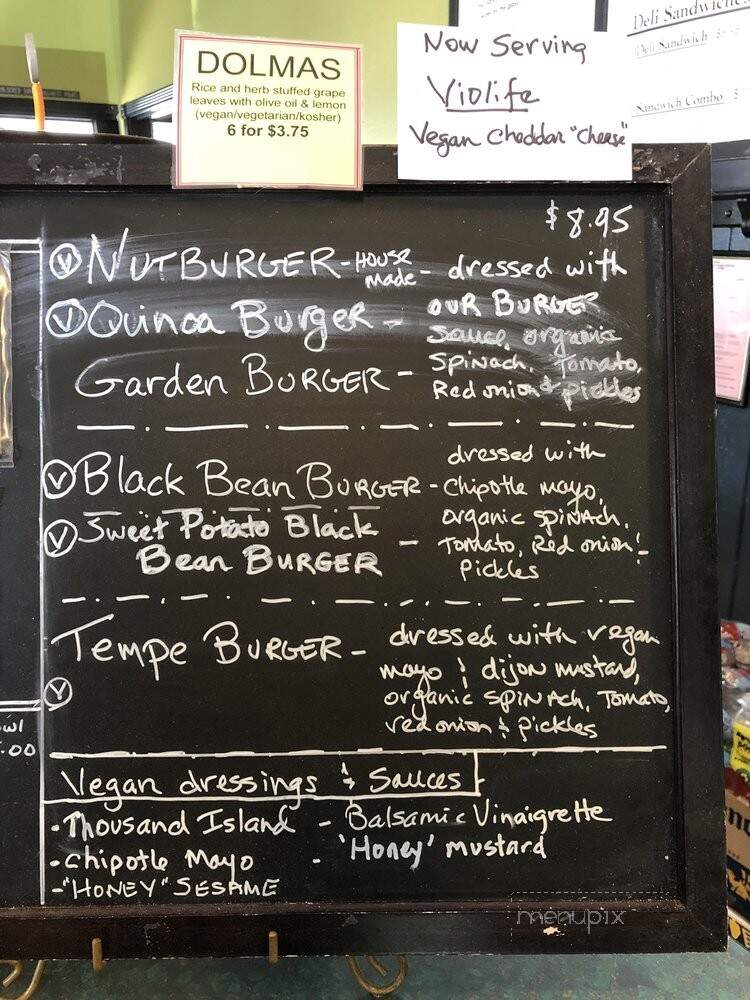 DOLMAS
Rice and herb stuffed grape
leaves with olive oil & lemon
(vegan/vegetarian/kosher)
6 for $3.75
Now Serving
Violife
Vegan Cheddar "Cheese"
Deli Sandwiches
Deli Sandwich
Sandwich Combo
$8.95
Ⓥ NUTBURGER - HOUSE made - dressed with
Ⓥ Quinoa Burger - OUR BURGER
Sauce, organic
Garden BURGER - Spinach, Tomato,
Red onion & pickles
dressed with
Ⓥ Black Bean BURGER - Chipotle mayo,
organic spinach,
Ⓥ Sweet Potato Black
Bean BURGER - Tomato, Red onion &
Pickles
Tempe BURGER - dressed with vegan
mayo & dijon mustard,
Ⓥ organic spinach, Tomato,
red onion & pickles
Vegan dressings & Sauces
•Thousand Island - Balsamic Vinaigrette
•Chipotle Mayo - 'Honey' mustard
-"HONEY" SESAME
.00
menupix